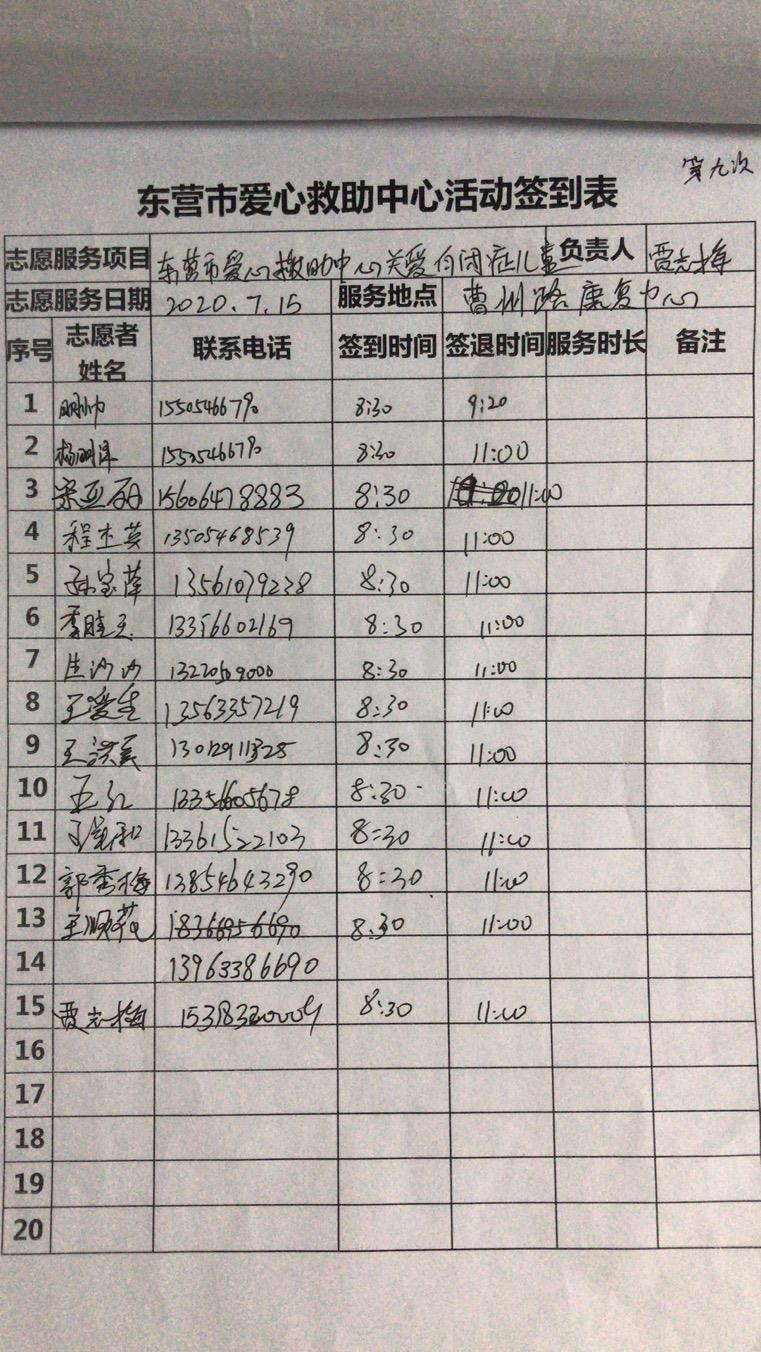 第九次
东营市爱心救助中心活动签到表
志愿服务项目 东营市爱心救助中心关爱自闭症儿童 负责人 贾志梅
志愿服务日期 2020.7.15 服务地点 曹州路康复中心
序号 志愿者姓名 联系电话 签到时间 签退时间 服务时长 备注
1 8:30 9:20
2 杨明泽 8:30 11:00
3 宋亚丽 15606478883 8:30 11:00
4 程杰英 13505468539 8:30 11:00
5 孙宝萍 13561079238 8:30 11:00
6 李晓天 13356602169 8:30 11:00
7 沙沙 13220509000 8:30 11:00
8 王爱生 13563357219 8:30 11:00
9 王洪义 8:30 11:00
10 13356605678 8:30 11:00
11 13361522103 8:30 11:00
12 郭秀梅 13854643290 8:30 11:00
13 王顺花 18366956690 8:30 11:00
14 13963386690
15 贾志梅 8:30 11:00
16
17
18
19
20